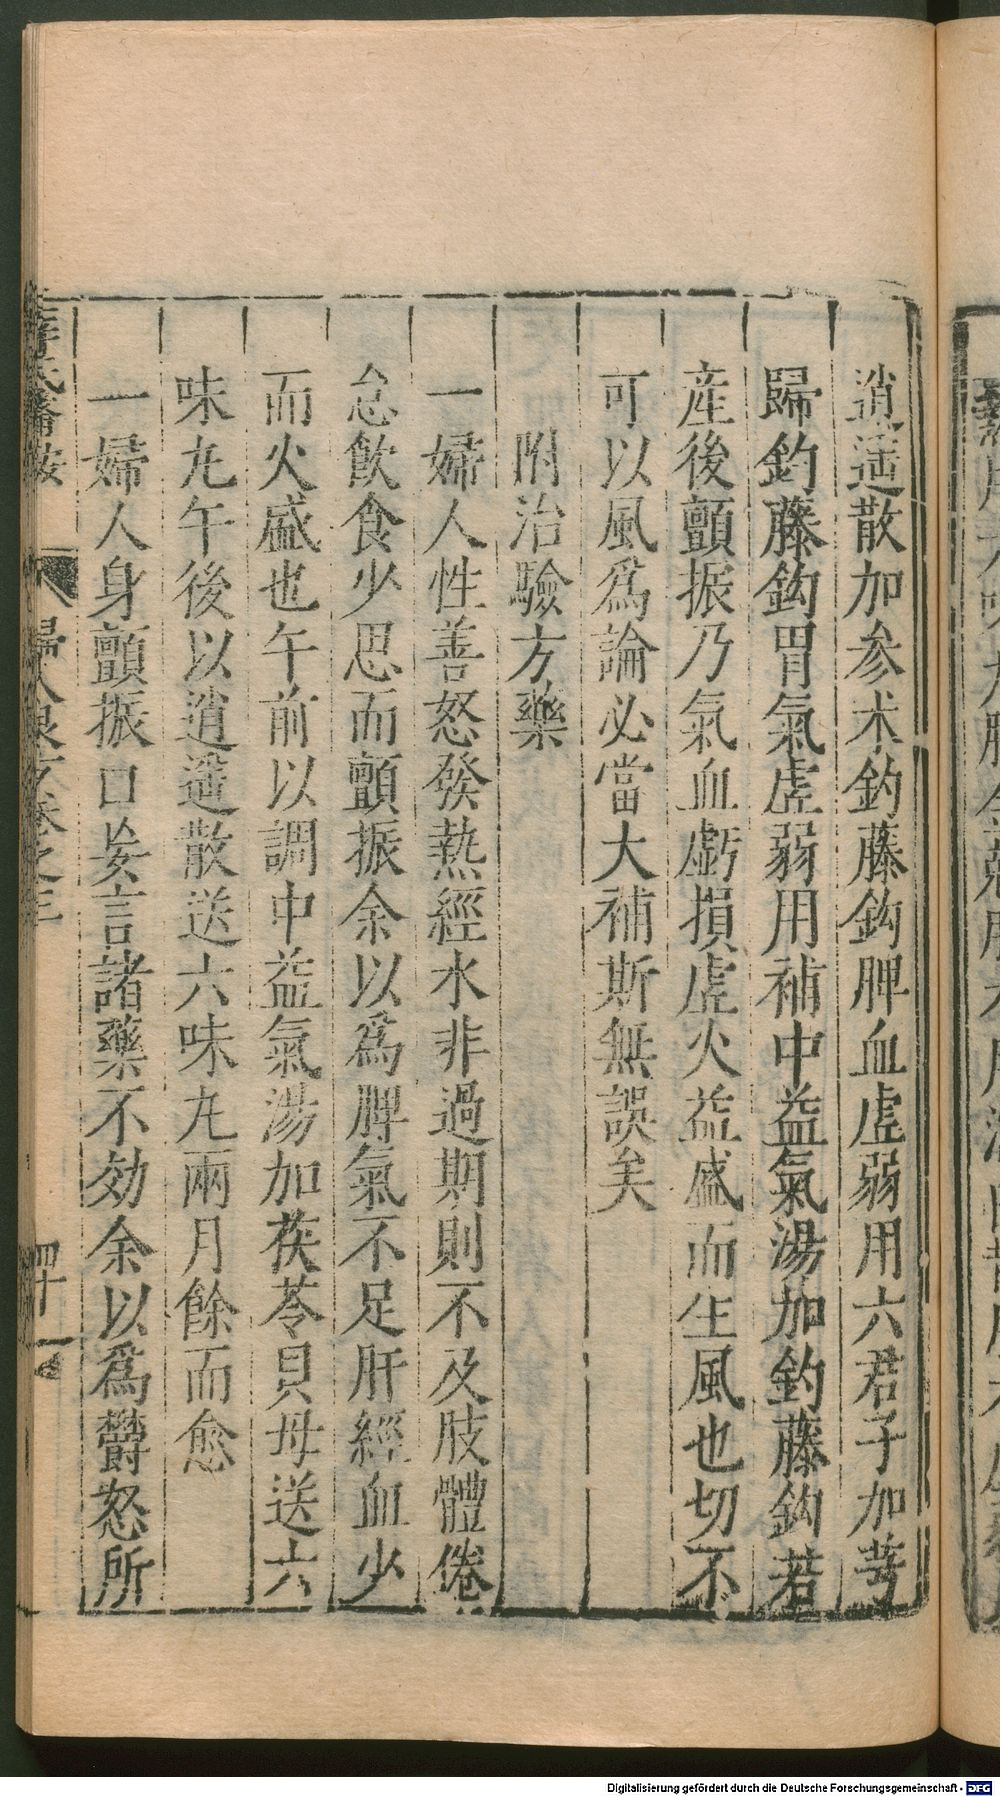 逍遥散加参术釣藤鈎脾血虛弱用六君子加芎
歸釣藤鈎胃氣虛弱用補中益氣湯加釣藤鈎若
產後顫振乃氣血虧損虛火益盛而生風也切不
可以風爲論必當大補斯無誤矣
附治驗方藥
一婦人性善怒發熱經水非過期則不及肢體倦
怠飲食少思而顫振余以爲脾氣不足肝經血少
而火盛也午前以調中益氣湯加茯苓貝母送六
味丸午後以逍遥散送六味丸兩月餘而愈
一婦人身顫振口妄言諸藥不効余以爲欝怒所
薛氏醫按
婦人良方卷之三
四十一
Digitalisierung gefördert durch die Deutsche Forschungsgemeinschaft - DFG